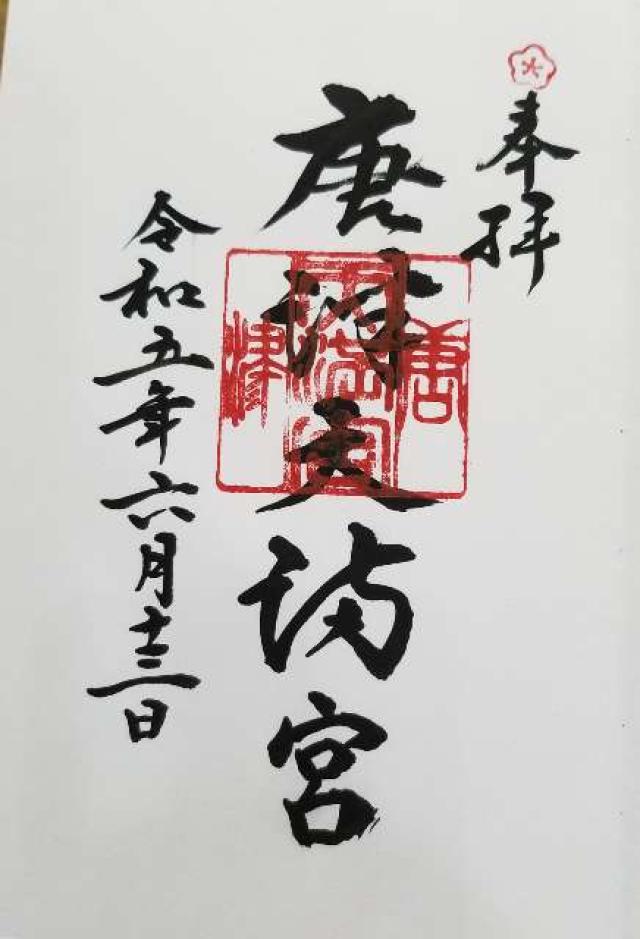 奉拝
唐津天満宮
唐津天満宮
令和五年六月十三日